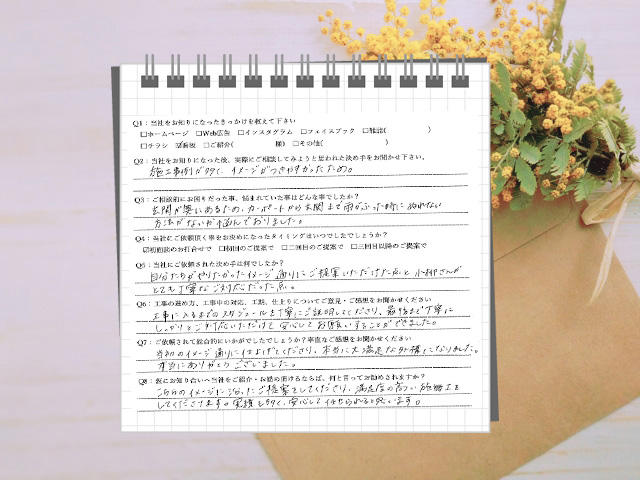 Q1：当社をお知りになったきっかけを教えて下さい
□ホームページ □Web広告 □インスタグラム □フェイスブック □雑誌( )
□チラシ ☑看板 □ご紹介( 様) □その他( )
Q2：当社をお知りになった後、実際にご相談してみようと思われた決め手をお聞かせ下さい。
施工事例が多く、イメージがつきやすかったため。
Q3：ご相談前にお困りだった事、悩まれていた事はどんな事でしたか？
玄関が奥にあるため、カーポートから玄関まで雨がふった時にぬれない
方法がないか悩んでおりました。
Q4：当社にご依頼頂く事をお決めになったタイミングはいつでしたでしょうか？
☑初回面談のお打合せで □初回のご提案で □二回目のご提案で □三回目以降のご提案で
Q5：当社にご依頼された決め手は何でしたか？
自分たちがやりたかったイメージ通りにご提案いただけた点と 小林さんが
とても丁寧なご対応だった点。
Q6：工事の進め方、工事中の対応、工期、仕上りについてご意見・ご感想をお聞かせください
工事に入るまでのスケジュールを丁寧にご説明してくださり、着工まで丁寧に
しっかりとご対応いただけて安心してお願いすることができました。
Q7：ご依頼されて総合的にいかがでしたでしょうか？率直なご感想をお聞かせください
当初のイメージ通りに仕上げてくださり、本当に大満足な外構になりました。
本当にありがとうございました。
Q8：仮にお知り合いへ当社をご紹介・お勧め頂けるならば、何と言ってお勧めされますか？
こちらのイメージに沿ったご提案をしてくださり、満足度の高い施工を
してくださります。実績も多く、安心して任せられると思います。